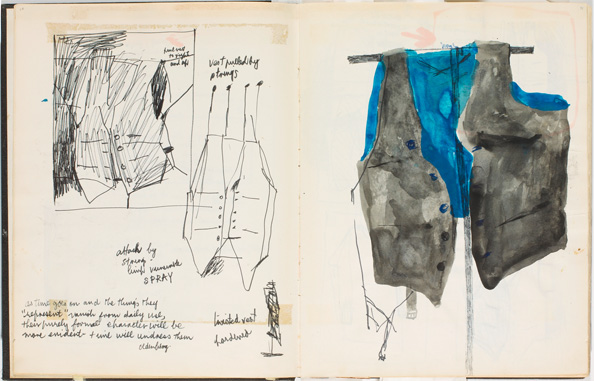 pull vest
to right
and up
vest pulled by
strings
attach by
string
limp vulnerable
SPRAY
as time goes on and the things they
"represent" vanish from daily use,
their purely formal character will be
more evident + time will undress them
Oldenburg
twisted vest
hardened